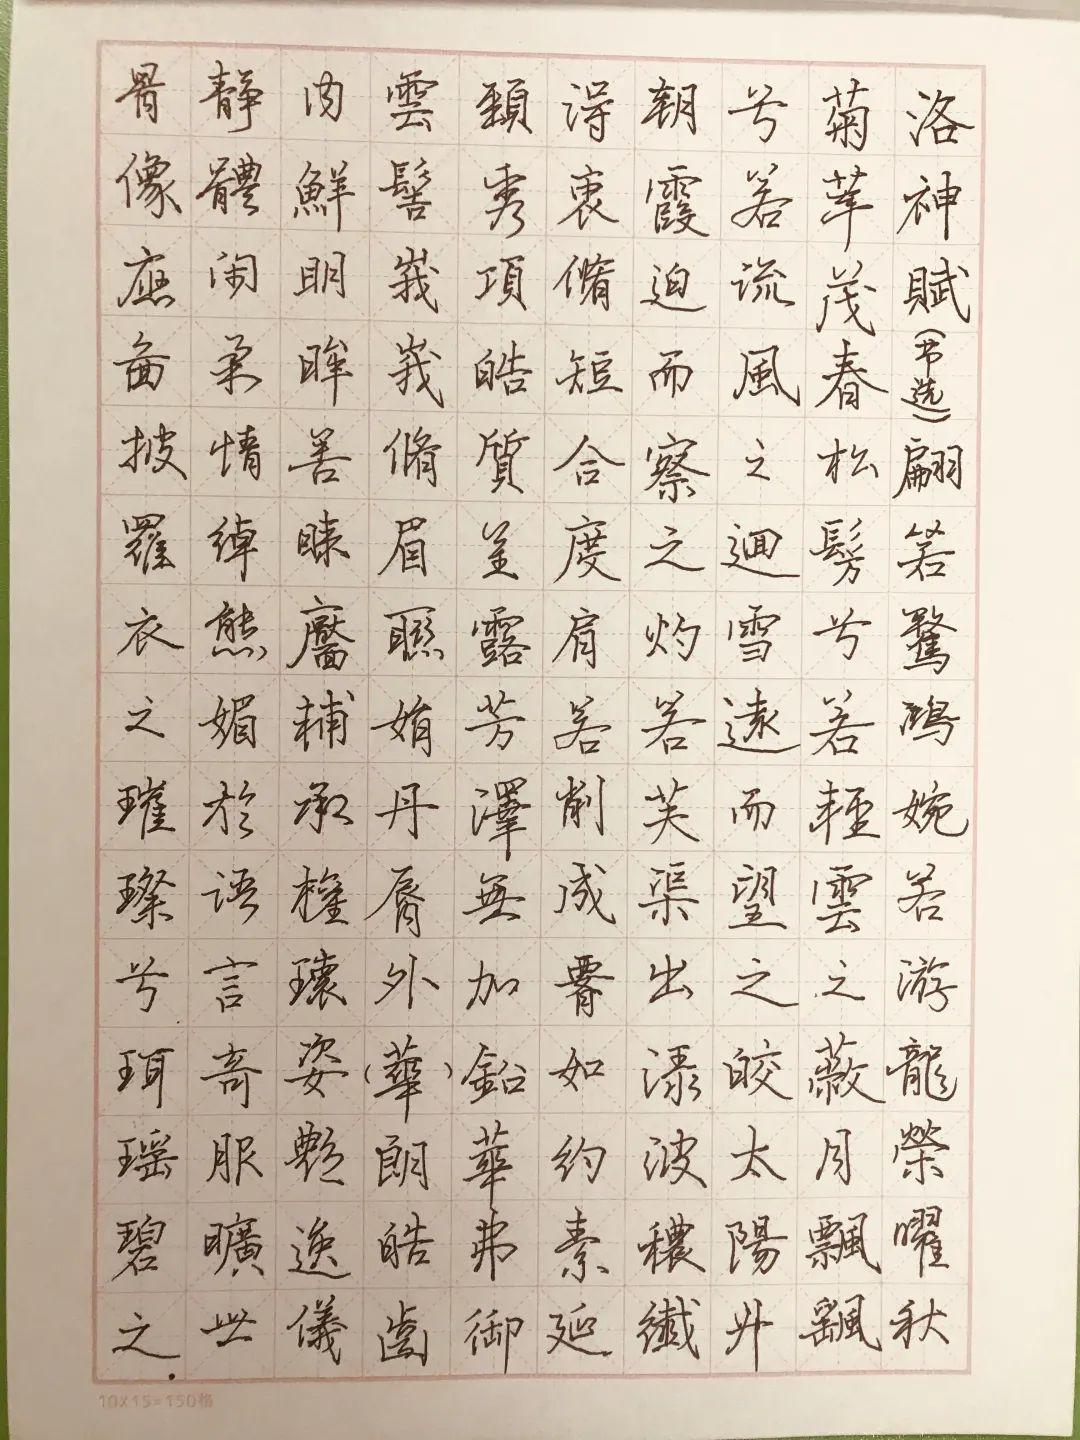 洛神賦（节选）翩若驚鴻婉若游龍榮曜秋
菊華茂春松髣兮若輕雲之蔽月飄颻
兮若流風之迴雪遠而望之皎太陽升
朝霞迫而察之灼若芙渠出淥波穠纖
得衷脩短合度肩若削成署如約素延
頸秀項皓質呈露芳澤無加鉛華弗御
雲髻峩峩脩眉聯娟丹脣外（華）朗皓齒
内鮮明眸善睞靨輔承權瓌姿艷逸儀
靜體闲柔情綽態媚於語言奇服曠世
骨像應啚披羅衣之璀璨兮珥瑶碧之
10×15=150格